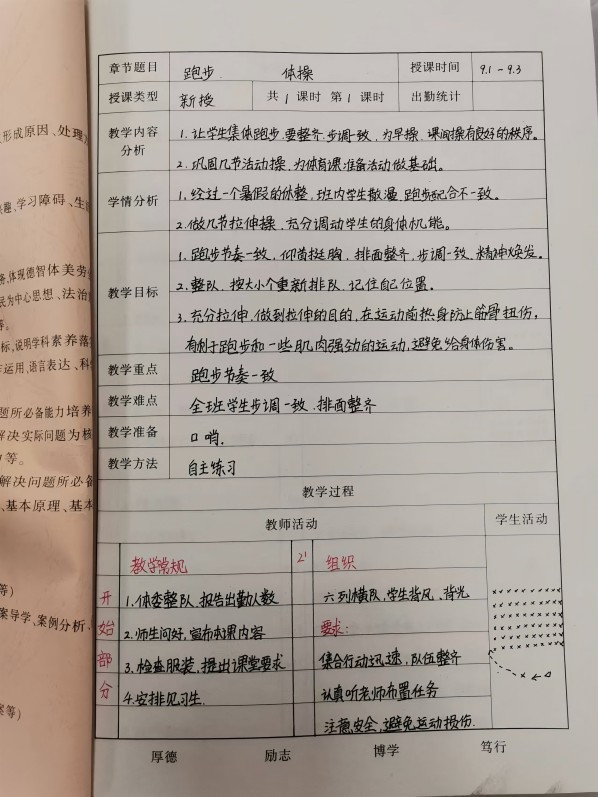 形成原因、处理
趣、学习障碍、生
务,体现德智体美劳
民为中心思想、法治
等。
标,说明学科素养落
运用、语言表达、科
题所必备能力培养
解决实际问题为核
等。
解决问题所必备
、基本原理、基本
等)
案导学、案例分析、
案等)
章节题目 跑步 体操 授课时间 9.1-9.3
授课类型 新授 共1课时 第1课时 出勤统计
教学内容分析 1.让学生集体跑步,要整齐,步调一致,为早操、课间操有良好的秩序。
2.巩固几节活动操,为体育课准备活动做基础。
学情分析 1.经过一个暑假的休整,班内学生散漫,跑步配合不一致。
2.做几节拉伸操,充分调动学生的身体机能。
教学目标 1.跑步节奏一致,仰首挺胸,排面整齐,步调一致,精神焕发。
2.整队,按大小个重新排队,记住自己位置。
3.充分拉伸,做到拉伸的目的,在运动前热身防止筋骨扭伤,
有利于跑步和一些肌肉强劲的运动,避免给身体伤害。
教学重点 跑步节奏一致
教学难点 全班学生步调一致,排面整齐
教学准备 口哨.
教学方法 自主练习
教学过程
教师活动 学生活动
开始部分
教学常规
1.体委整队,报告出勤人数
2.师生问好,宣布本课内容
3.检查服装,提出课堂要求
4.安排见习生.
2'
组织
六列横队,学生背风、背光
要求:
集合行动迅速,队伍整齐
认真听老师布置任务
注意安全,避免运动损伤.
厚德 励志 博学 笃行